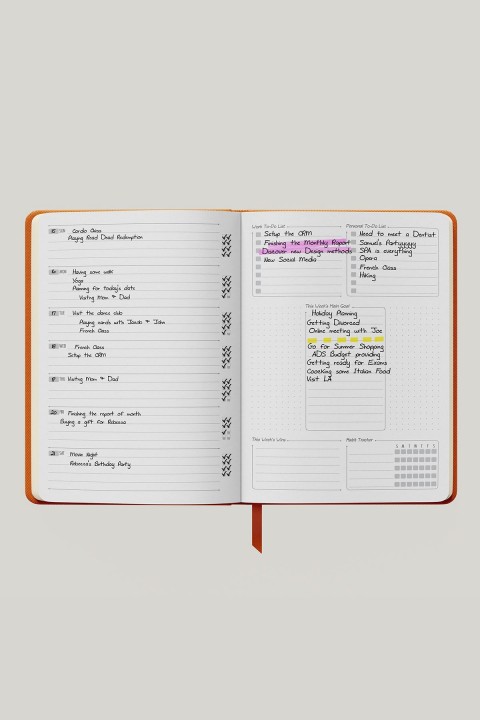 Cardio Class
Playing Read Dead Redemption
16 Having some walk
Yoga
Planning for today's date
Visiting Mom & Dad
17 Visit the dance club
Playing cards with & John
French Class
18 French Class
Setup the CRM
19 Visiting Mom & Dad
20 Finishing the report of month
Buying a gift for Rebecca
21 Movie Night
Rebecca's Birthday Party
Work To-Do List
Setup the CRM
Finishing the Monthly Report
Discover new Design methods
New Social Media
Personal To-Do List
Need to meet a Dentist
Samuel's Party
SPA is everything
Opera
French Class
Hiking
This Week's Main Goal
Holiday Planning
Getting Divorced
Online meeting with Joe
Go for Summer Shopping
ADS Budget providing
Getting ready for Exams
Cooeking some Italian Food
Visit LA
This Week's Wins
Habit Tracker
S M T W T F S